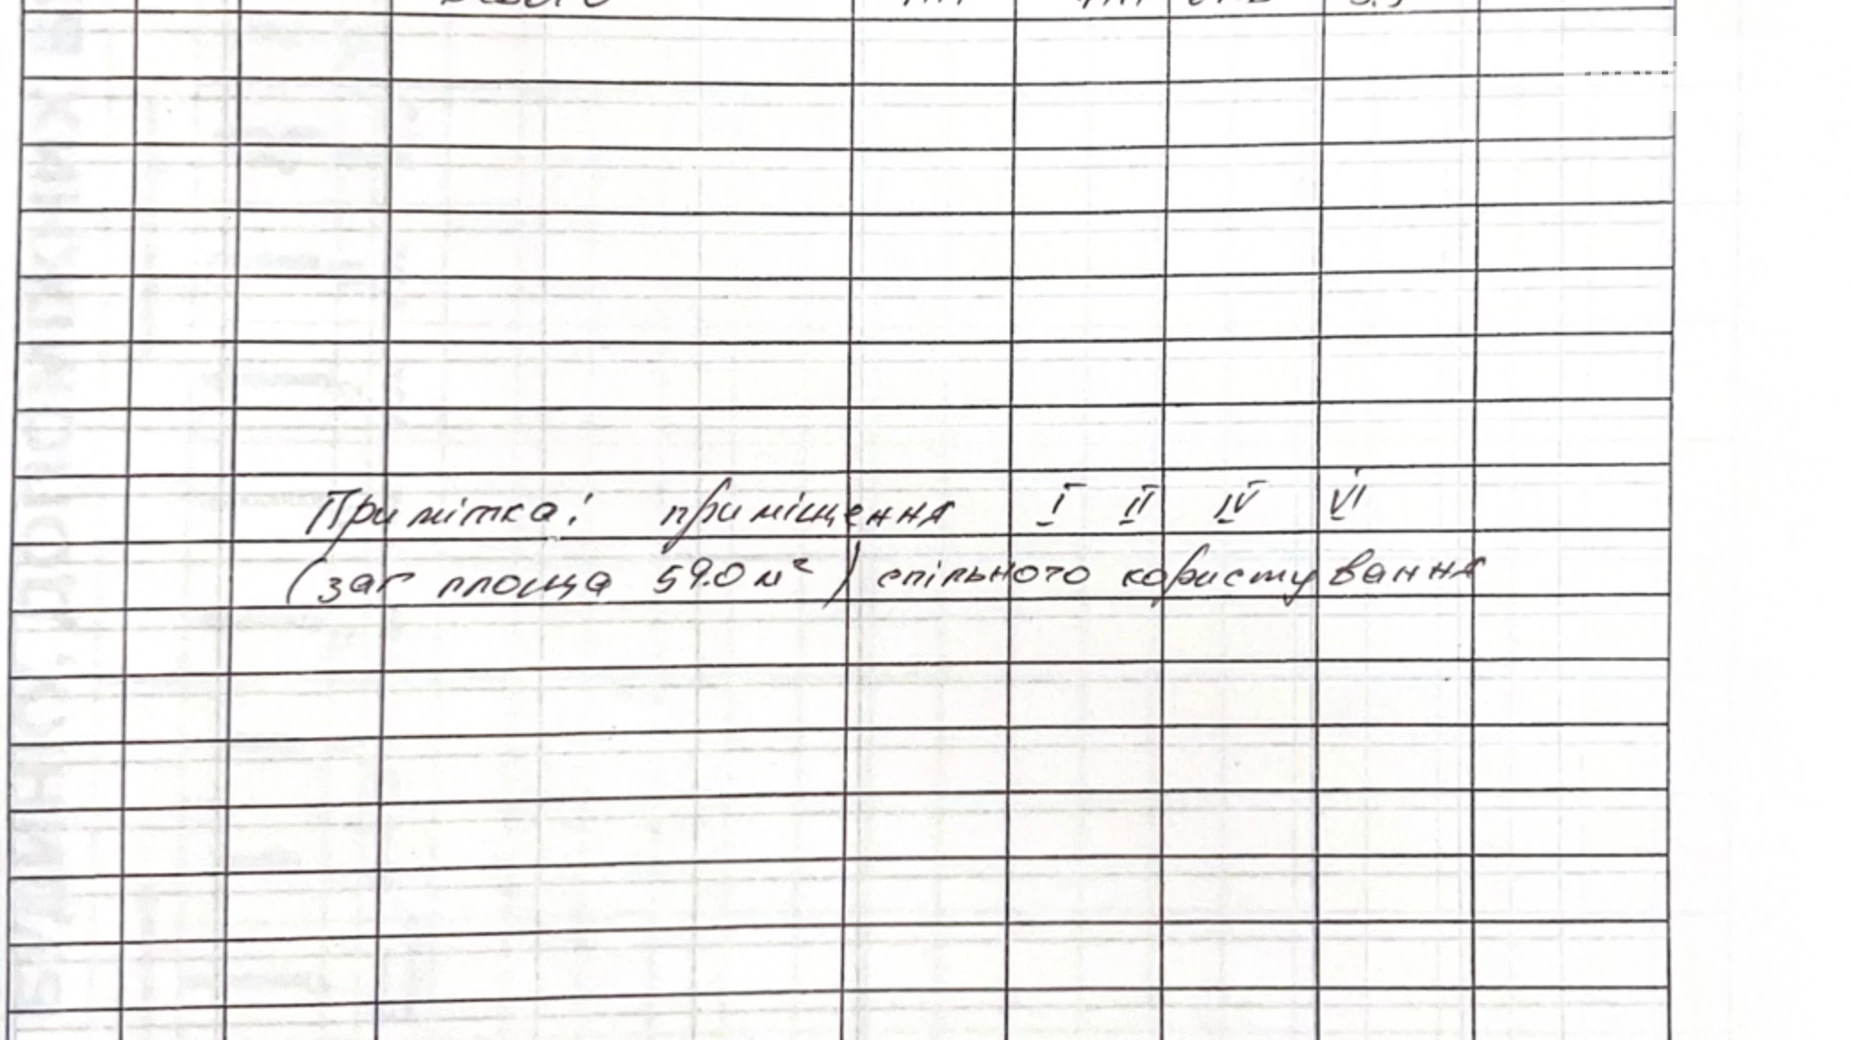 Примітка: приміщення I II IV VI
(заг площа 59.0 м²) спільного користування